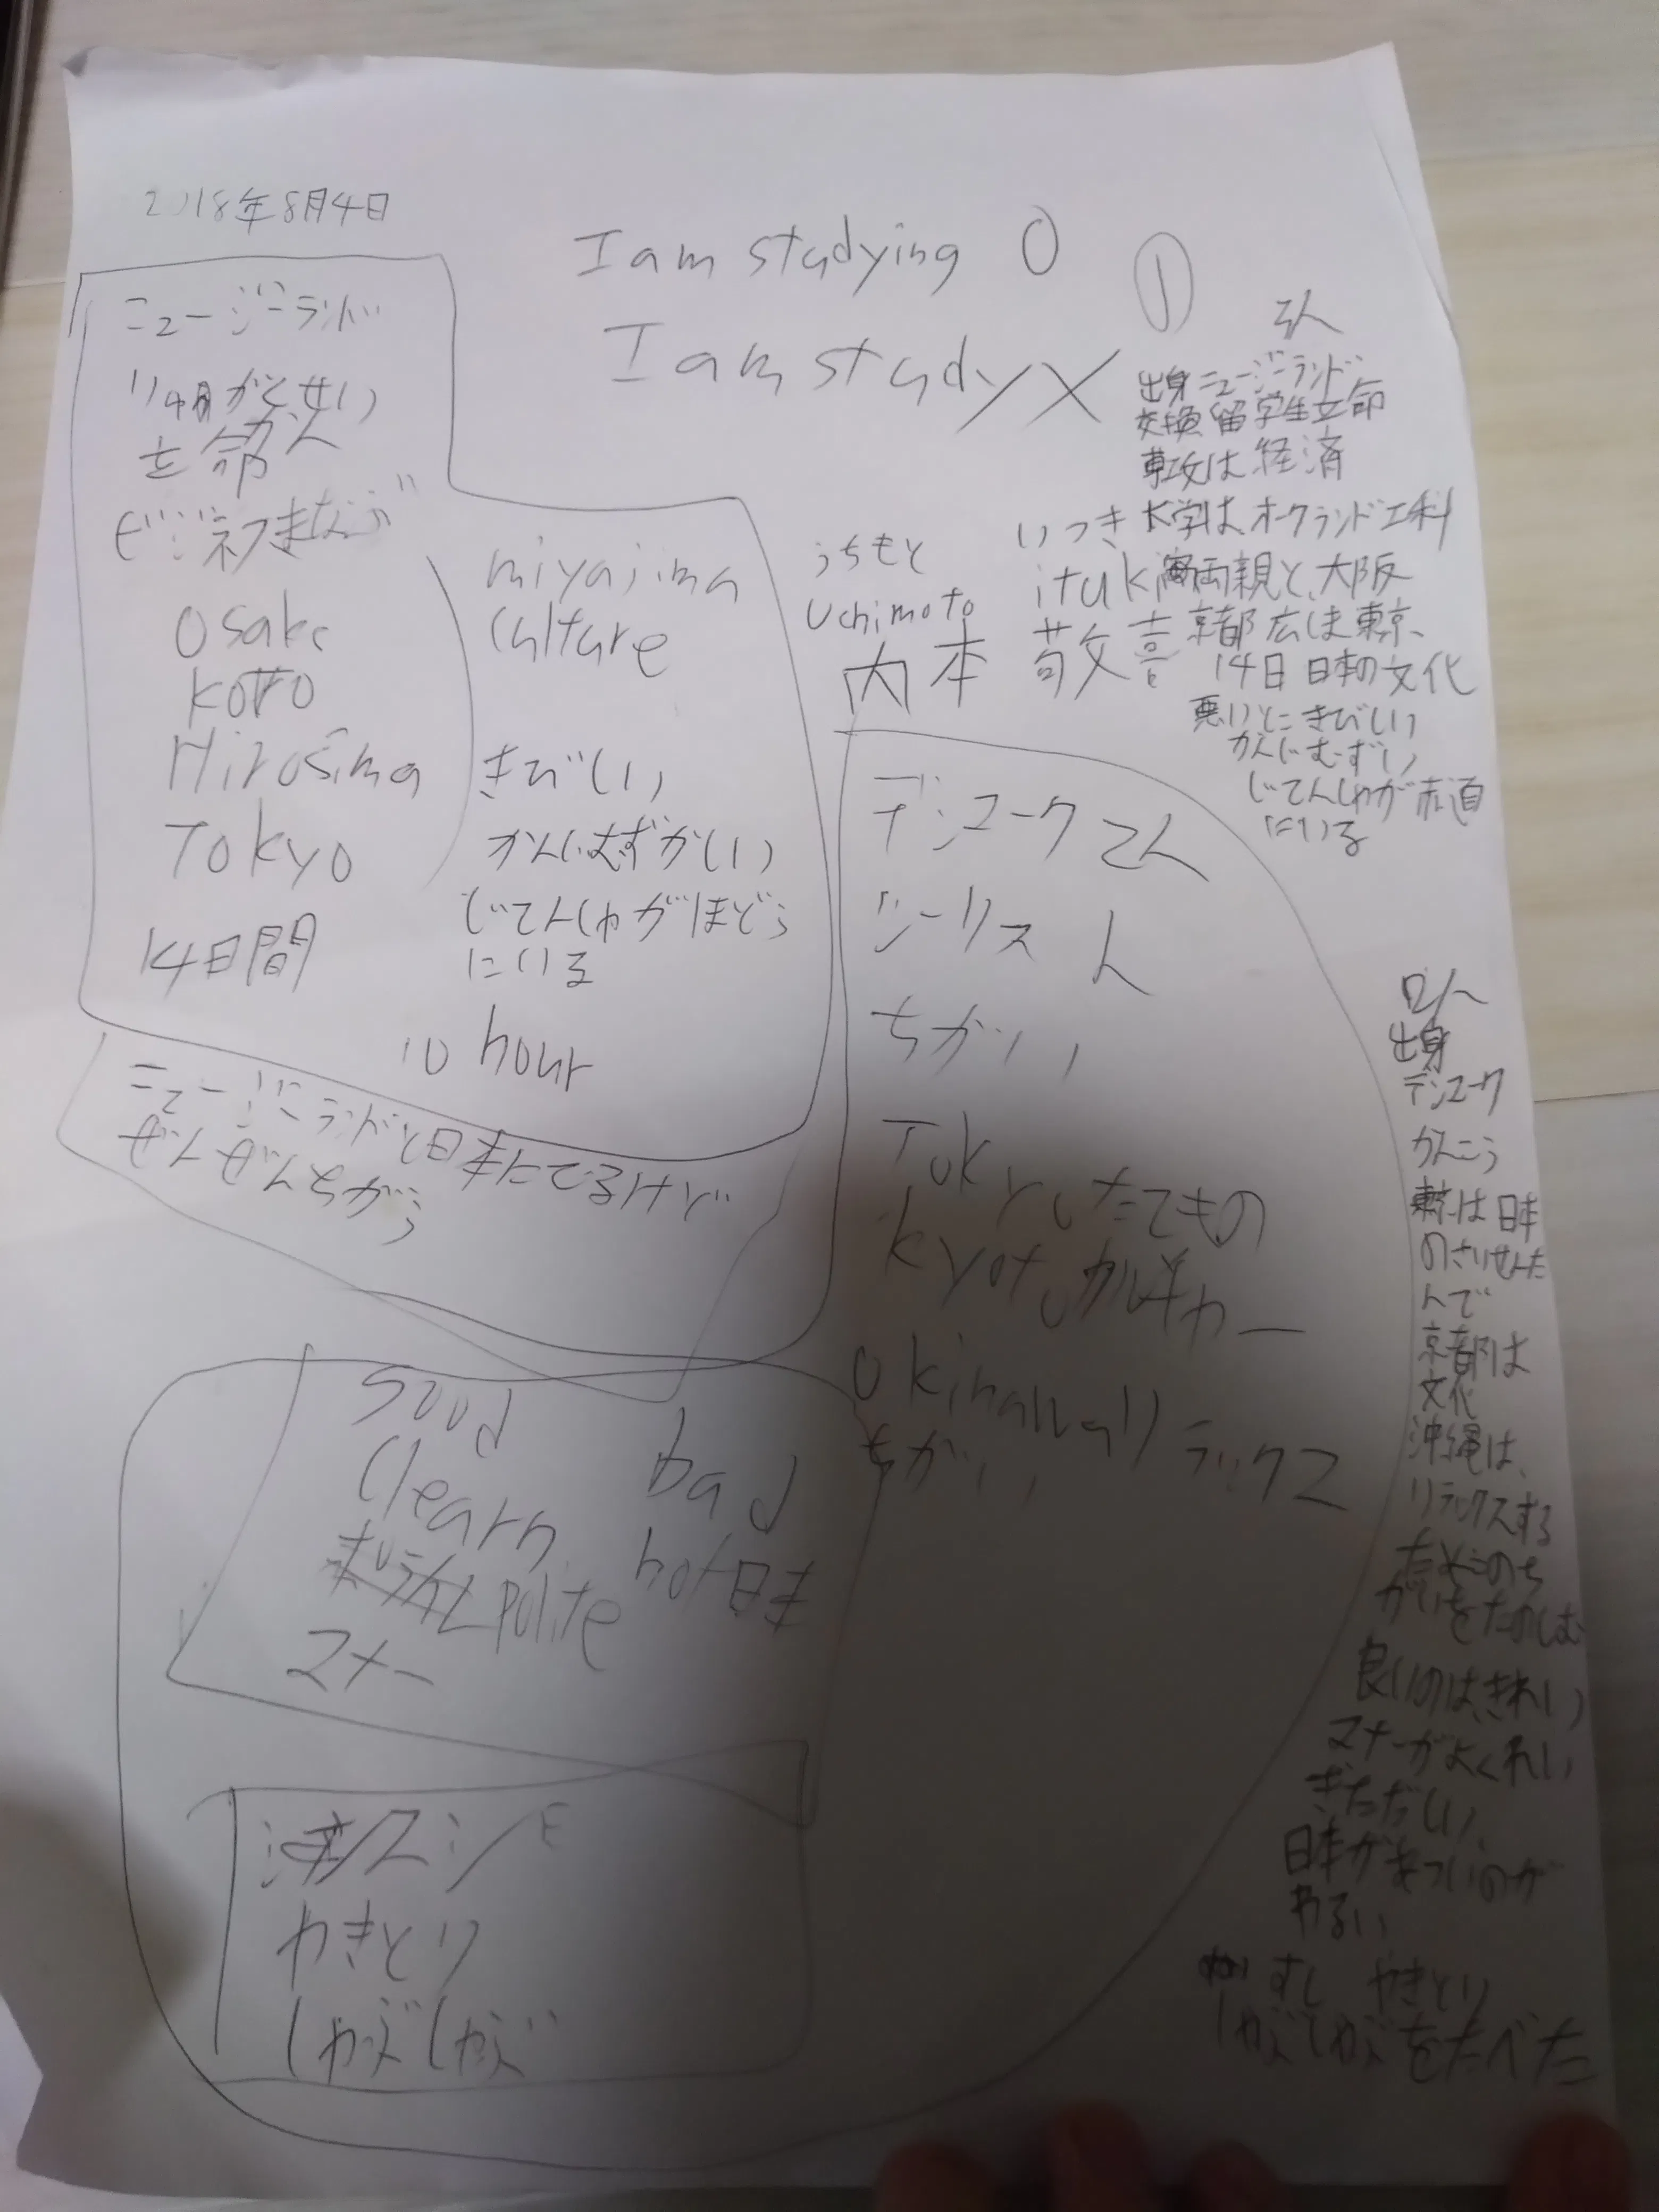 2018年8月4日
I am studying O
I am study X
①
ニュージーランド
ビジネスまなぶ
Osaka
Hirosima
Tokyo
14日間
miyajima
culture
きびしい
かんじむずかしい
じてんしゃがほどう
にいる
10 hour
ニュージーランドと日本にてるけど
ぜんぜんちがう
うちもと
Uchimoto
内本 敬喜
いつき
ituki
3人
出身ニュージーランド
交換留学生立命
専攻は経済
大学はオークランド工科
両親と、大阪
京都広しま東京、
14日 日本の文化
悪いとこきびしい
かんじむずい
じてんしゃが歩道
にいる
デンマークさん
ちがい
Tokyoたてもの
kyoto カルチャー
okinawaリラックス
ちがい
good
clearn
polite
マナー
bad
hot日本
スシ
やきとり
しゃぶしゃぶ
出身
デンマーク
かんこう
東京は日本
のさいせんた
んで
京都は
文化
沖縄は、
リラックスする
かいをたのしむ
良いのは、きれい
マナーがよくれい
ぎただしい、
日本があついのが
わるい
すし やきとり
しゃぶしゃぶをたべた